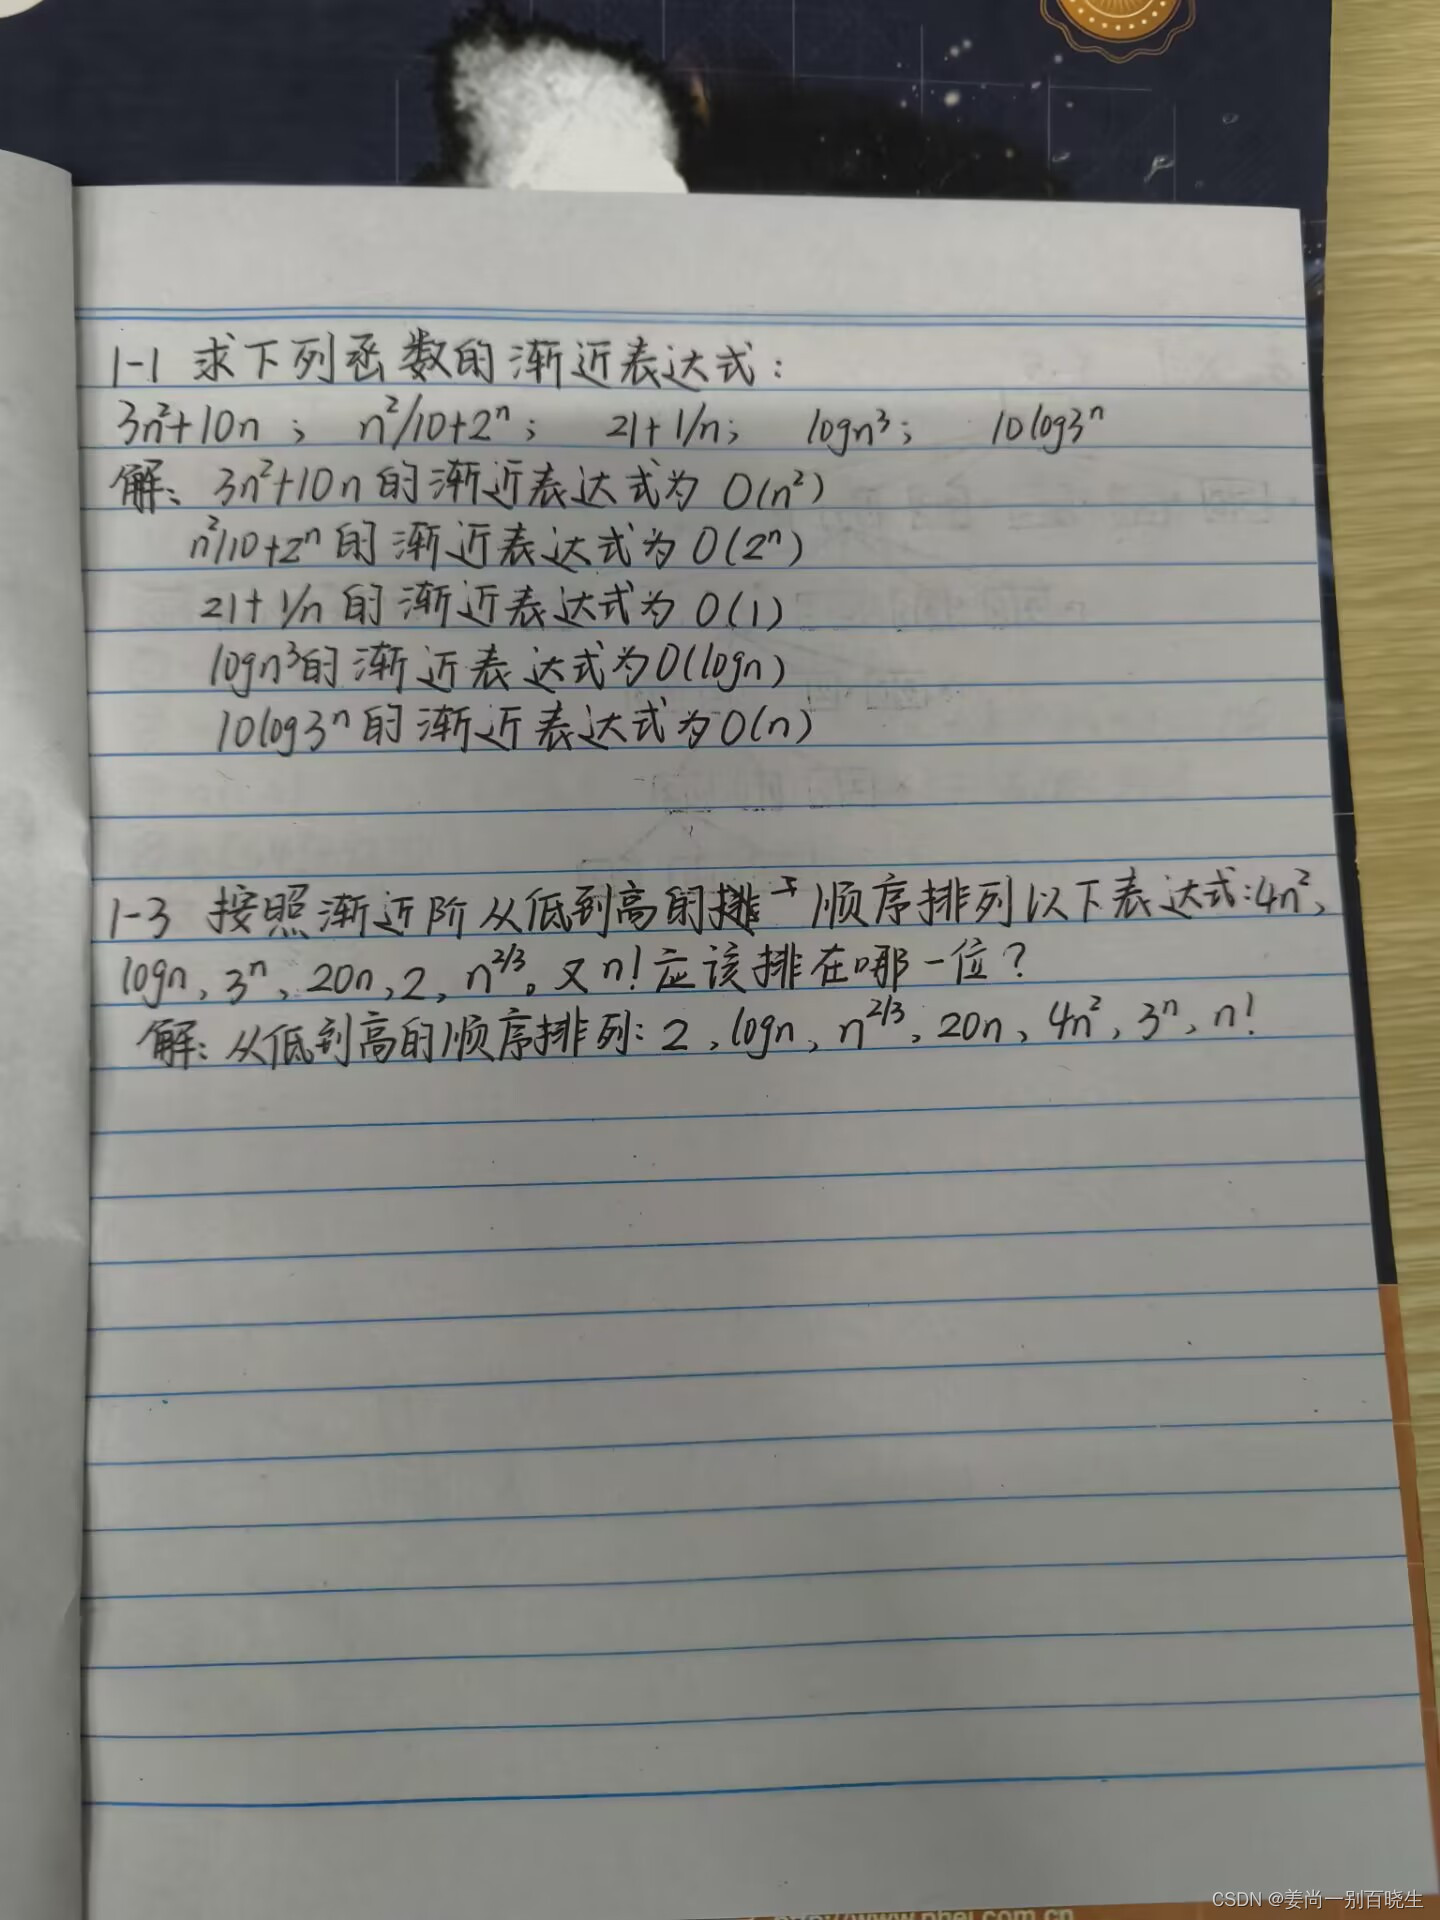 1-1 求下列函数的渐近表达式:
3n²+10n ; n²/10+2ⁿ; 21+1/n; logn³; 10log3ⁿ
解: 3n²+10n的渐近表达式为 O(n²)
n²/10+2ⁿ的渐近表达式为O(2ⁿ)
21+1/n的渐近表达式为O(1)
logn³的渐近表达式为O(logn)
10log3ⁿ的渐近表达式为O(n)
1-3 按照渐近阶从低到高的顺序排列以下表达式:4n²,
logn, 3ⁿ, 20n, 2, n^2/3。又n!应该排在哪一位?
解: 从低到高的顺序排列: 2, logn, n^2/3, 20n, 4n², 3ⁿ, n!
CSDN @姜尚一别百晓生